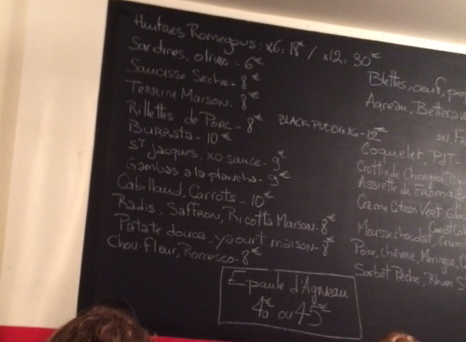 Huitres Romegous: x6: 18€ / x12: 30€
Sardines, olives - 6€
Saucisse Seche - 8€
Terrine Maison. 8€
Rillettes de Porc - 8€
Black Pudding - 12€
Burrata - 10€
St Jacques, xo sauce - 9€
Gambas a la plancha - 9€
Cabillaud, Carrots - 10€
Radis, Saffron, Ricotta Maison - 8€
Patate douce - yaourt maison - 8€
Chou-Fleur, Romesco - 8€
Epaule d'Agneau
40€ ou 45€
Blettes, oeuf,
Agneau,
Coquelet
Assiette de
Creme Citron Vert
Mousse chocolat,
Poire, Chèvre, Meringue,
Sorbet Pêche, Rhum